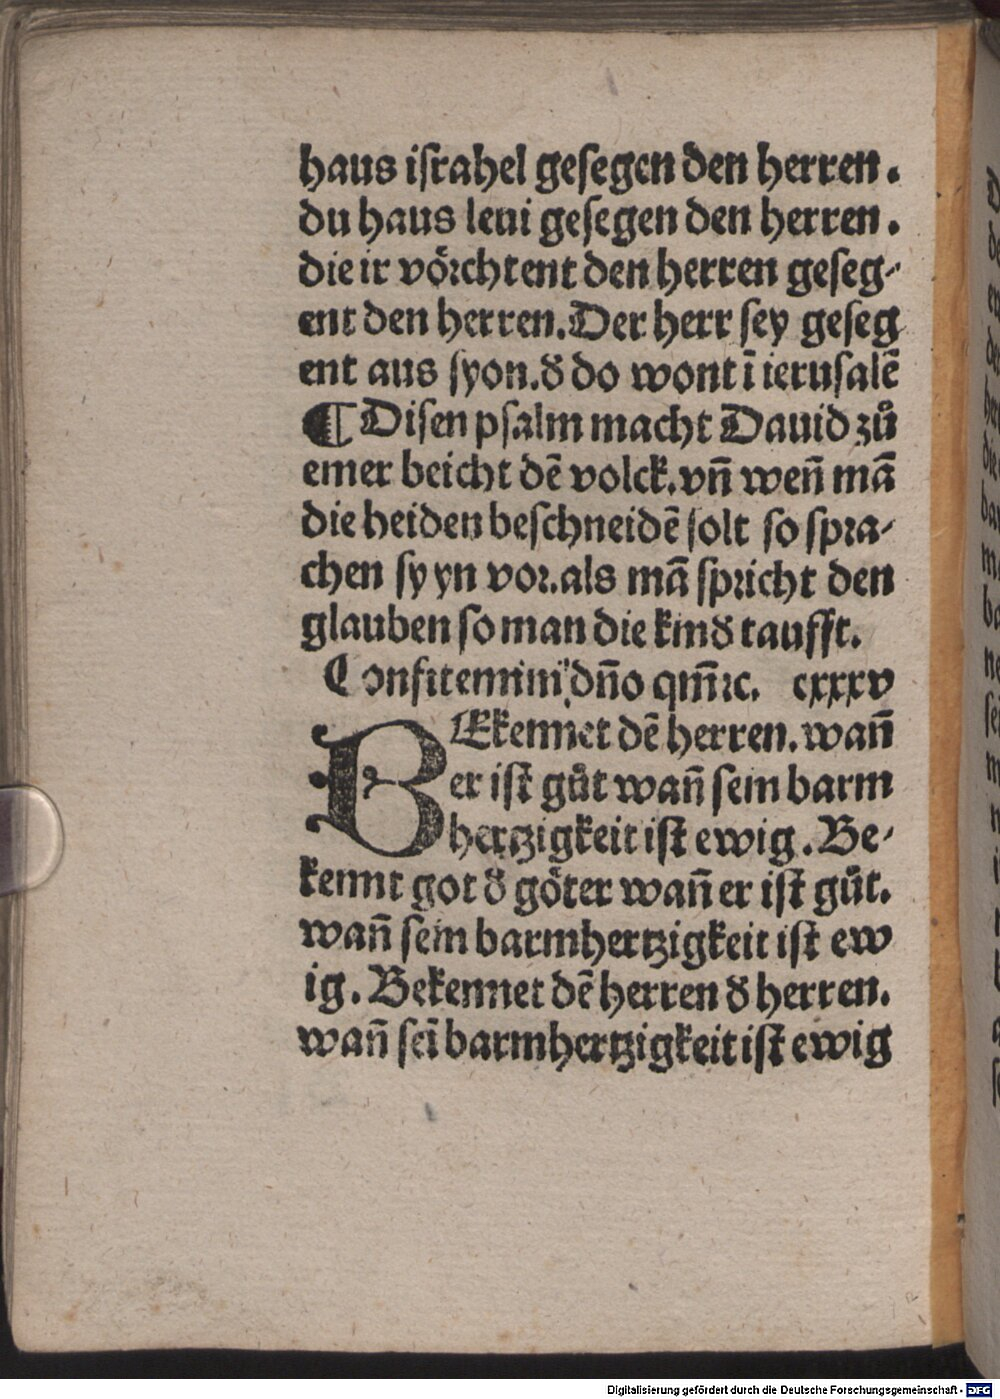 haus iſrahel geſegen den herren.
du haus leui geſegen den herren.
die ir voͤꝛchtent den herren geſeg⸗
ent den herren. Der herr ſey geſeg
ent aus ſyon. đ do wont ī ieruſalē
¶ Diſen pſalm macht Dauid zuͦ
einer beicht dē volck. vn̄ wen̄ mā
die heiden beſchneidē ſolt ſo ſpra⸗
chen ſy yn voꝛ. als mā ſpricht den
glauben ſo man die kind taufft.
Confitemini dn̄o qm̄ ꝛc. cxxxv
BEkennet dē herren. wan̄
er iſt guͦt wan̄ ſein barm
hertzigkeit iſt ewig. Be⸗
kennt got đ goͤter wan̄ er iſt guͦt.
wan̄ ſein barmhertzigkeit iſt ew
ig. Bekennet dē herren đ herren.
wan̄ ſeī barmhertzigkeit iſt ewig
Digitalisierung gefördert durch die Deutsche Forschungsgemeinschaft - DFG